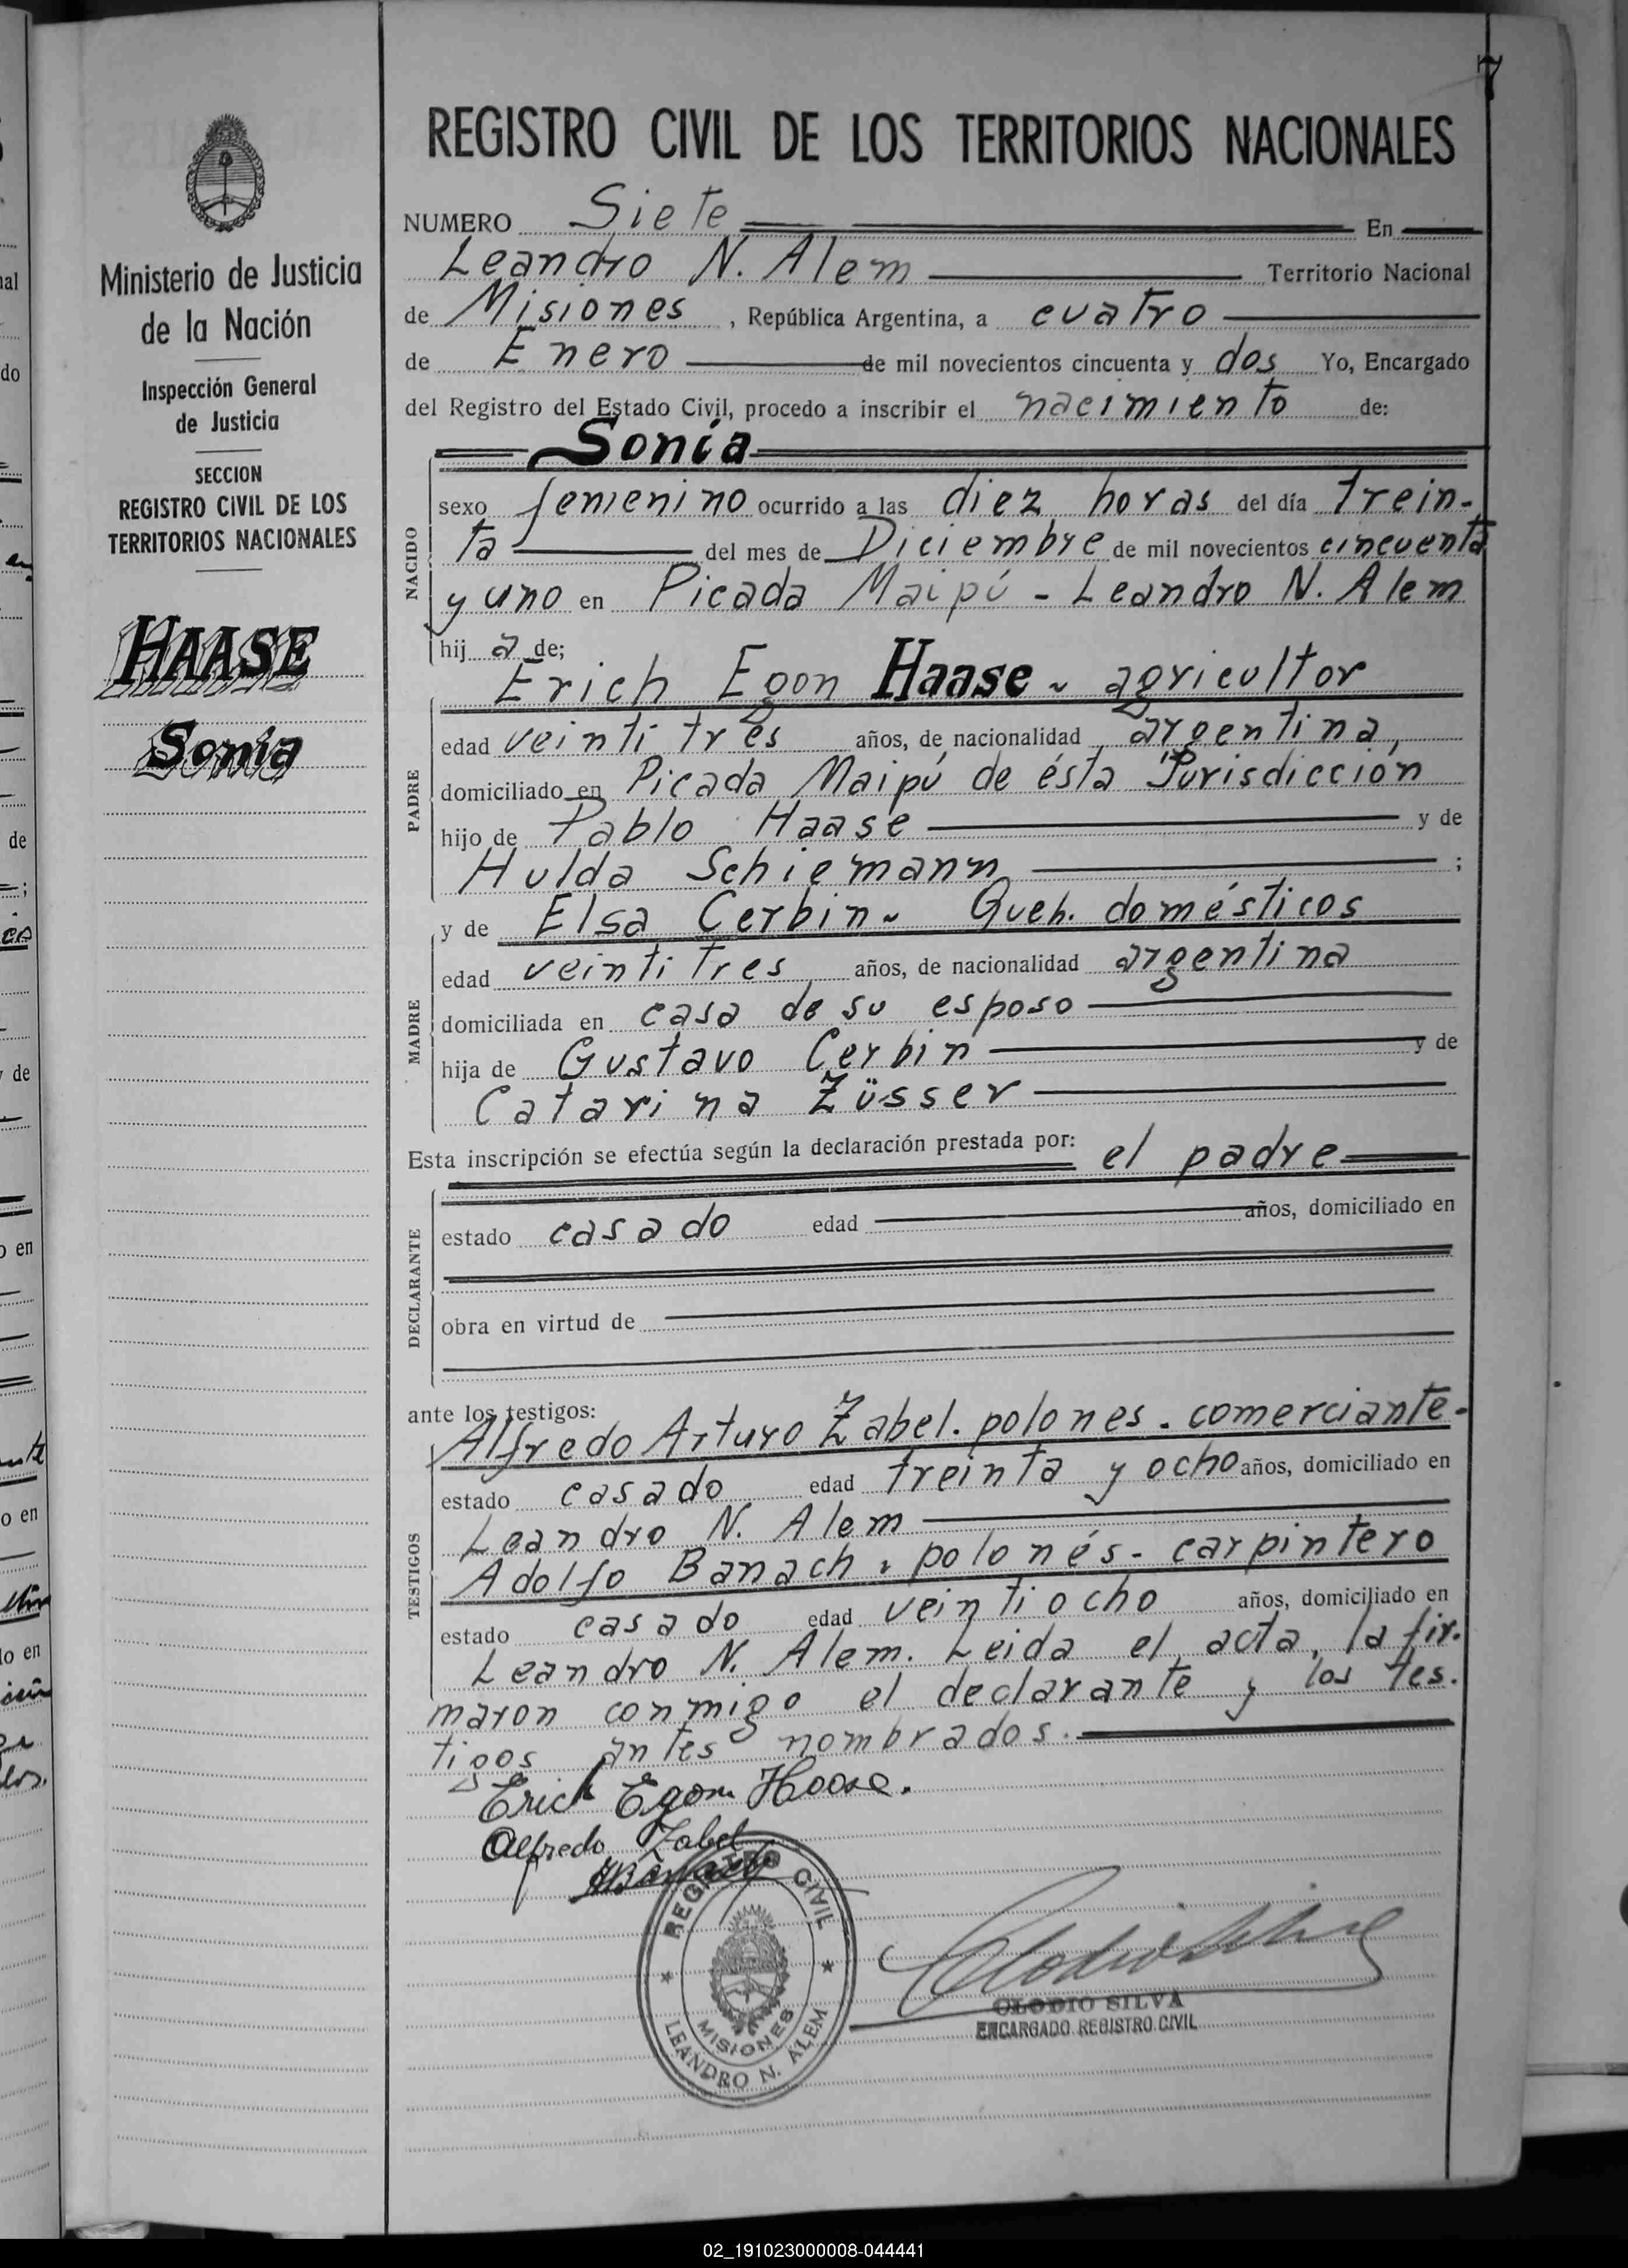 7
REGISTRO CIVIL DE LOS TERRITORIOS NACIONALES
Ministerio de Justicia
de la Nación
Inspección General
de Justicia
SECCION
REGISTRO CIVIL DE LOS
TERRITORIOS NACIONALES
HAASE
Sonia
NUMERO Siete En
Leandro N. Alem Territorio Nacional
de Misiones, República Argentina, a cuatro
de Enero de mil novecientos cincuenta y dos Yo, Encargado
del Registro del Estado Civil, procedo a inscribir el nacimiento de:
Sonia
NACIDO
sexo femenino ocurrido a las diez horas del día trein-
ta del mes de Diciembre de mil novecientos cincuenta
y uno en Picada Maipú - Leandro N. Alem
hij a de;
PADRE
Erich Egon Haase - agricultor
edad veintitrés años, de nacionalidad argentina,
domiciliado en Picada Maipú de ésta Jurisdicción
hijo de Pablo Haase y de
Hulda Schiemann ;
MADRE
y de Elsa Cerbin - Queh. domésticos
edad veintitres años, de nacionalidad argentina
domiciliada en casa de su esposo
hija de Gustavo Cerbin y de
Catarina Züsser
Esta inscripción se efectúa según la declaración prestada por: el padre
DECLARANTE
estado casado edad años, domiciliado en
obra en virtud de
ante los testigos:
TESTIGOS
Alfredo Arturo Zabel. polones. comerciante-
estado casado edad treinta y ocho años, domiciliado en
Leandro N. Alem
Adolfo Banach. polonés- carpintero
estado casado edad veintiocho años, domiciliado en
Leandro N. Alem. Leida el acta, la fir-
maron conmigo el declarante y los tes-
tigos antes nombrados.
Erich Egon Haase.
Alfredo Zabel
ABanach
REGISTRO CIVIL
MISIONES
LEANDRO N. ALEM
Clodio Silva
CLODIO SILVA
ENCARGADO REGISTRO CIVIL
02_191023000008-044441